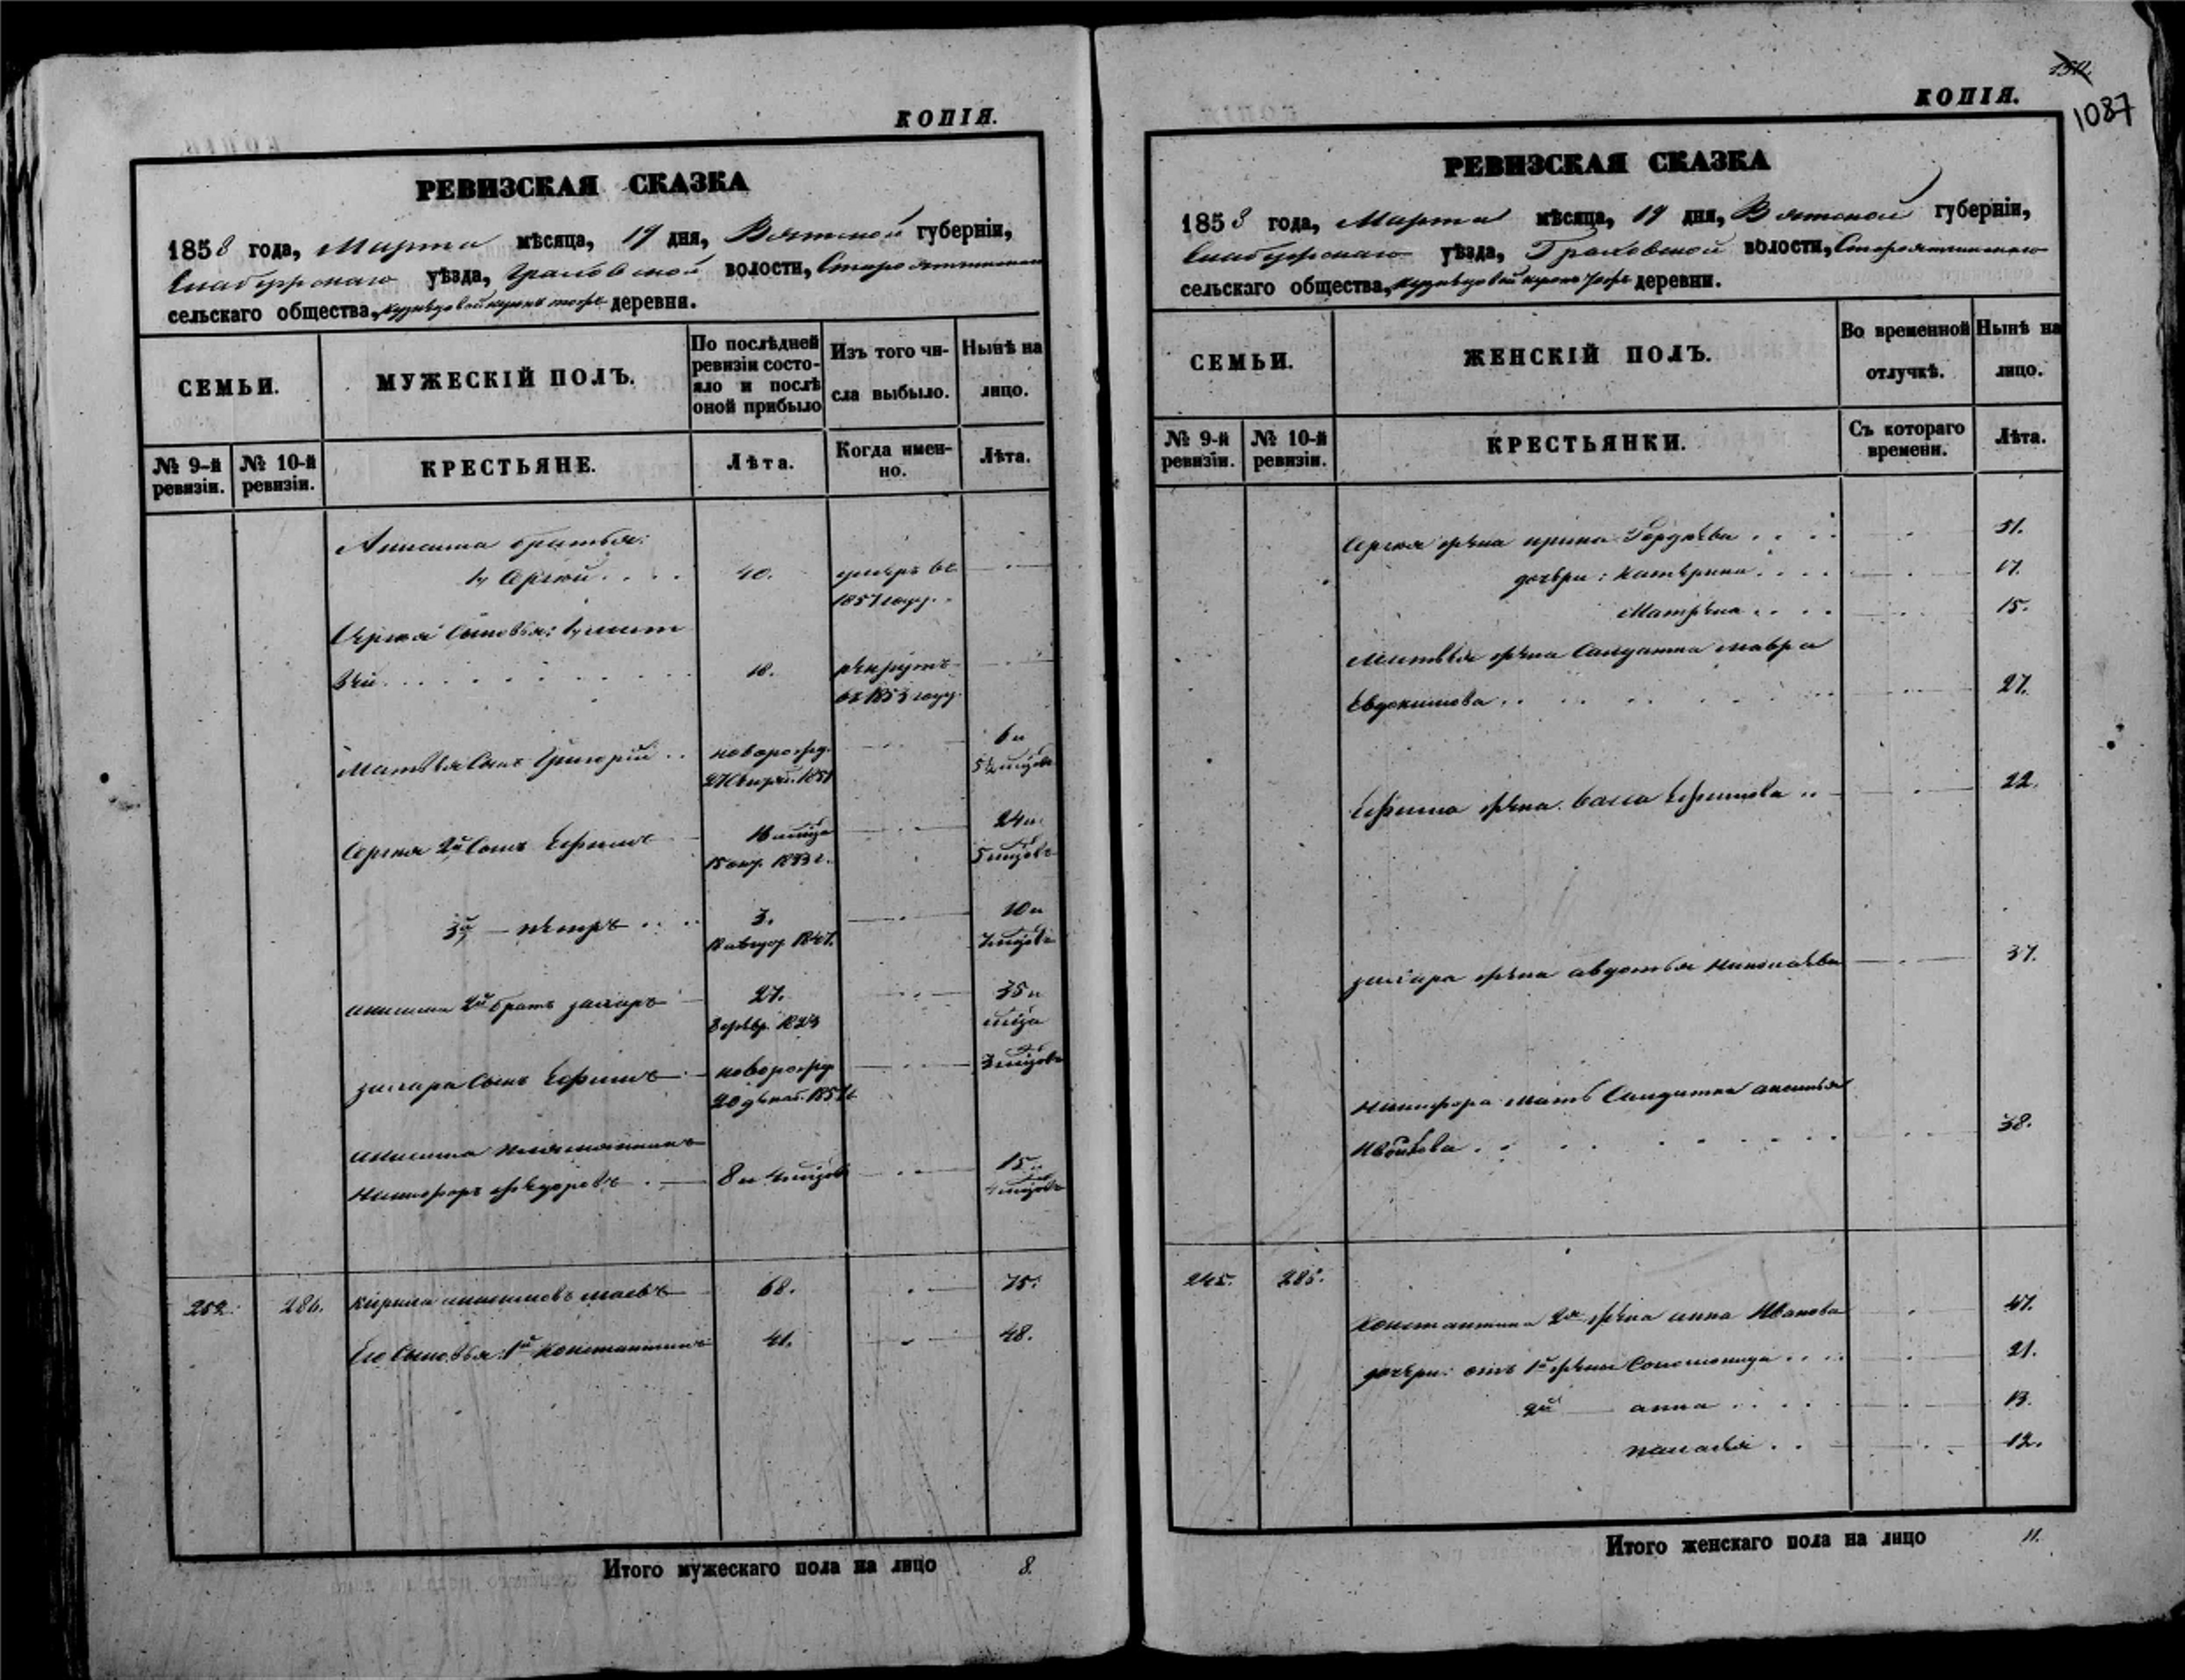 КОПІЯ.
РЕВИЗСКАЯ СКАЗКА
1858 года, Марта мѣсяца, 19 дня, Вятской губерніи,
Елабужскаго уѣзда, Граховской волости,
сельскаго общества, деревни.
СЕМЬИ.
МУЖЕСКІЙ ПОЛЪ.
По послѣдней
ревизіи состо-
яло и послѣ
оной прибыло
Изъ того чи-
сла выбыло.
Нынѣ на
лицо.
№ 9-й
ревизіи.
№ 10-й
ревизіи.
КРЕСТЬЯНЕ.
Лѣта.
Когда имен-
но.
Лѣта.
Анисима братья:
1й Сергей . . . . 40. умеръ въ
1857 году.
Сергея сыновья: 1й Мат
вей . . . . . . . . . 18. рекрутъ
въ 1853 году.
Матвея сынъ Григорій . . новорожд. 6 и
5½ мцовъ
Сергея 2й сынъ Ефимъ 24 и
5 мцовъ
3й — Петръ . . . . 3. 10 и
7 мцовъ
Анисима 2й братъ Захаръ 27. 35 и
мца
Захара сынъ Ефимъ новорожд. 3 мцовъ
Анисима племянникъ
Никифоръ Федоровъ 8 и 4 мцовъ 15 и
4 мцовъ
252. 286. Кирила Анисимовъ 68. 75.
Его сыновья: 1й Константинъ 41. 48.
Итого мужескаго пола на лицо 8.
1087
КОПІЯ.
РЕВИЗСКАЯ СКАЗКА
1858 года, Марта мѣсяца, 19 дня, Вятской губерніи,
Елабужскаго уѣзда, Граховской волости,
сельскаго общества, деревни.
СЕМЬИ.
ЖЕНСКІЙ ПОЛЪ.
Во временной
отлучкѣ.
Нынѣ на
лицо.
№ 9-й
ревизіи.
№ 10-й
ревизіи.
КРЕСТЬЯНКИ.
Съ котораго
времени.
Лѣта.
Сергея жена Ирина Гордеева . . . . 51.
дочери: Катерина . . . . 17.
Матрена . . . . 15.
Матвея жена солдатка Мавра
Евдокимова . . . . . . . 27.
Ефима жена Васса Ефимова . . 22.
Захара жена Авдотья Николаева 37.
Никифора мать солдатка
38.
245. 285.
Константина 2я жена Анна Иванова 47.
дочери: отъ 1й жены Соломонида . . . . 21.
2й — Анна . . . . 13.
Паладья . . 12.
Итого женскаго пола на лицо 11.